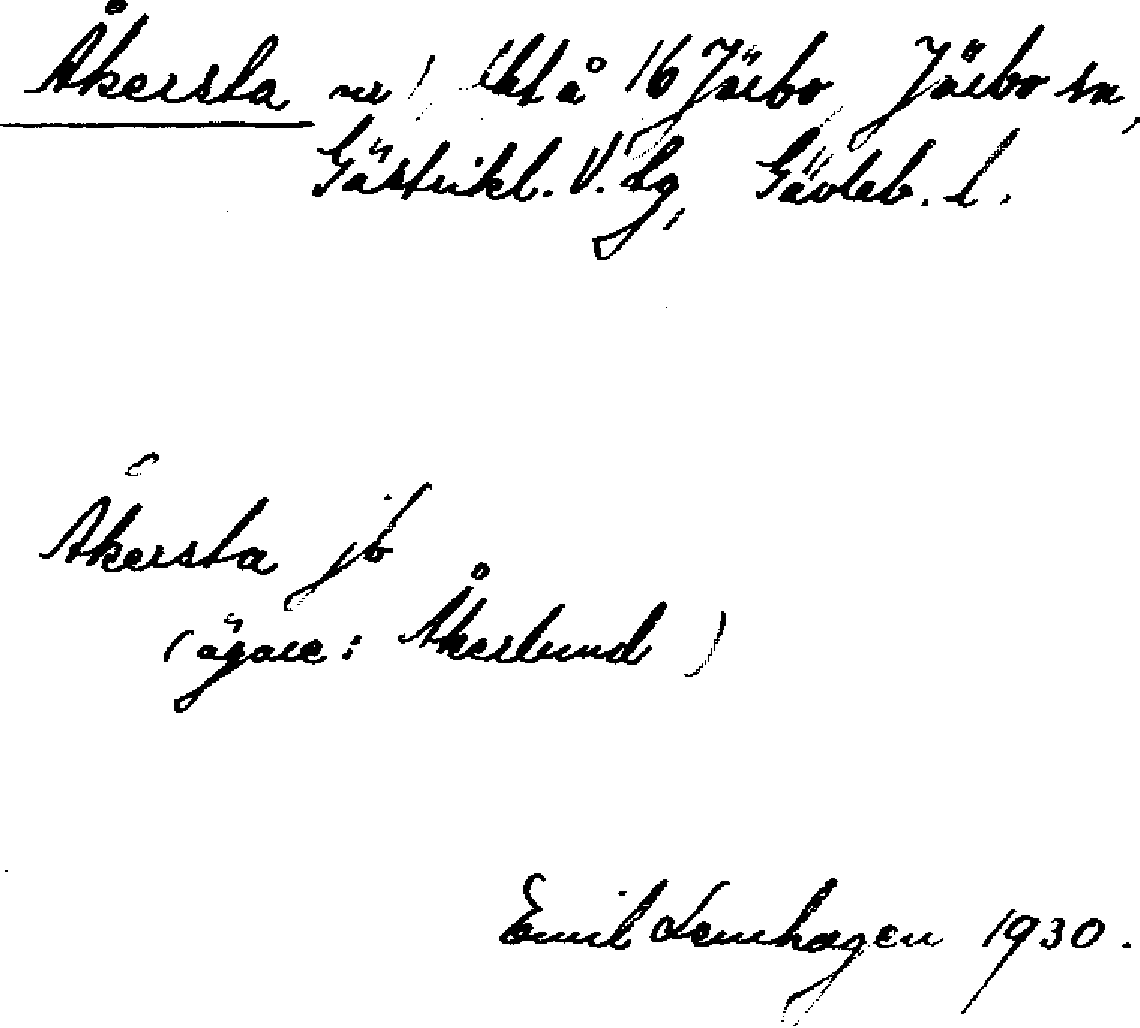 Åkersta nr 1 lht å 16 Järbo, Järbo sn,
Gästrikl. V. tg, Gävleb. l.
Åkersta jb
(ägare: Åkerlund)
Emil Lenhagen 1930.